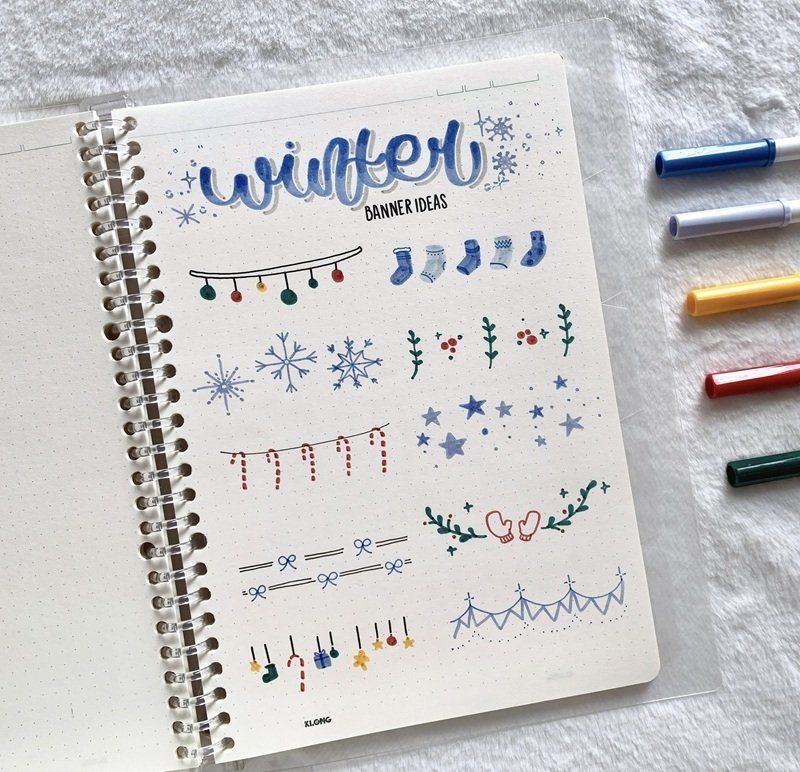 winter
BANNER IDEAS
KLONG